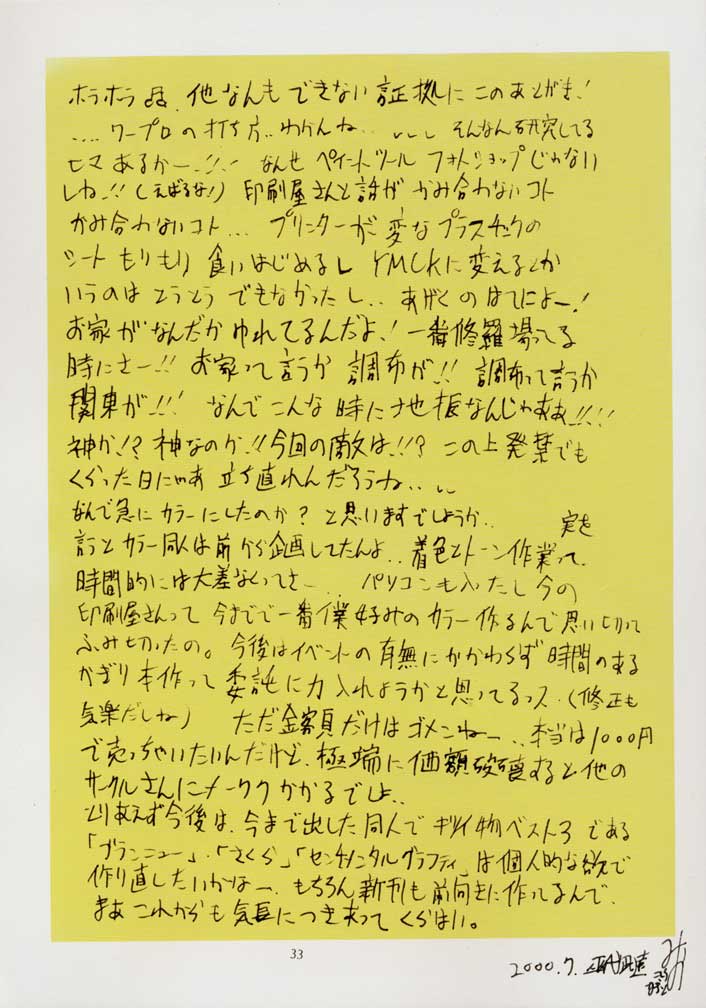 ホラホラ 他なんもできない証拠にこのあとがき!
‥‥ワープロの打ち方‥わかんね‥ そんなん研究してる
ヒマあるかー‥!!! なんせペイントツールフォトショップじゃない
しね‥!!(えばるな!) 印刷屋さんと話がかみ合わないコト
かみ合わないコト‥‥ プリンターが変なプラスチックの
シートもりもり食いはじめるし YMCKに変えるとか
いうのはとうとうできなかったし‥ あげくのはてによー!
お家がなんだかゆれてるんだよ! 一番修羅場ってる
時にさー‥!! お家って言うか調布が‥!! 調布って言うか
関東が‥!!! なんでこんな時に地振なんじゃああ!!‥!!
神か‥!? 神なのか‥!! 今回の敵は‥!!? この上発禁でも
くらった日にゃあ立ち直れんだろうね‥
なんで急にカラーにしたのか?と思いますでしょうか‥ 実を
言うとカラー同人は前から企画してたんよ‥着色とトーン作業って、
時間的には大差なくってさー‥ パソコンも入ったし今の
印刷屋さんって今までで一番僕好みのカラー作るんで思い切って
ふみ切ったの。今後はイベントの有無にかかわらず時間のある
かぎり本作って委託に力入れようかと思ってるっス・(修正も
気楽だしね) ただ金額だけはゴメンねー‥本当は1000円
で売っちゃいたいんだけど、極端に価額破壊すると他の
サークルさんにメーワクかかるでしょ‥
とりあえず今後は、今まで出した同人でキツイ物ベスト3である
「ブランニュー」・「さくら」「センチメンタルグラフティ」は個人的な欲で
作り直したいかなー、もちろん新刊も前向きに作ってるんで、
まあこれからも気長につき合ってくらはい。
33
2000.7.